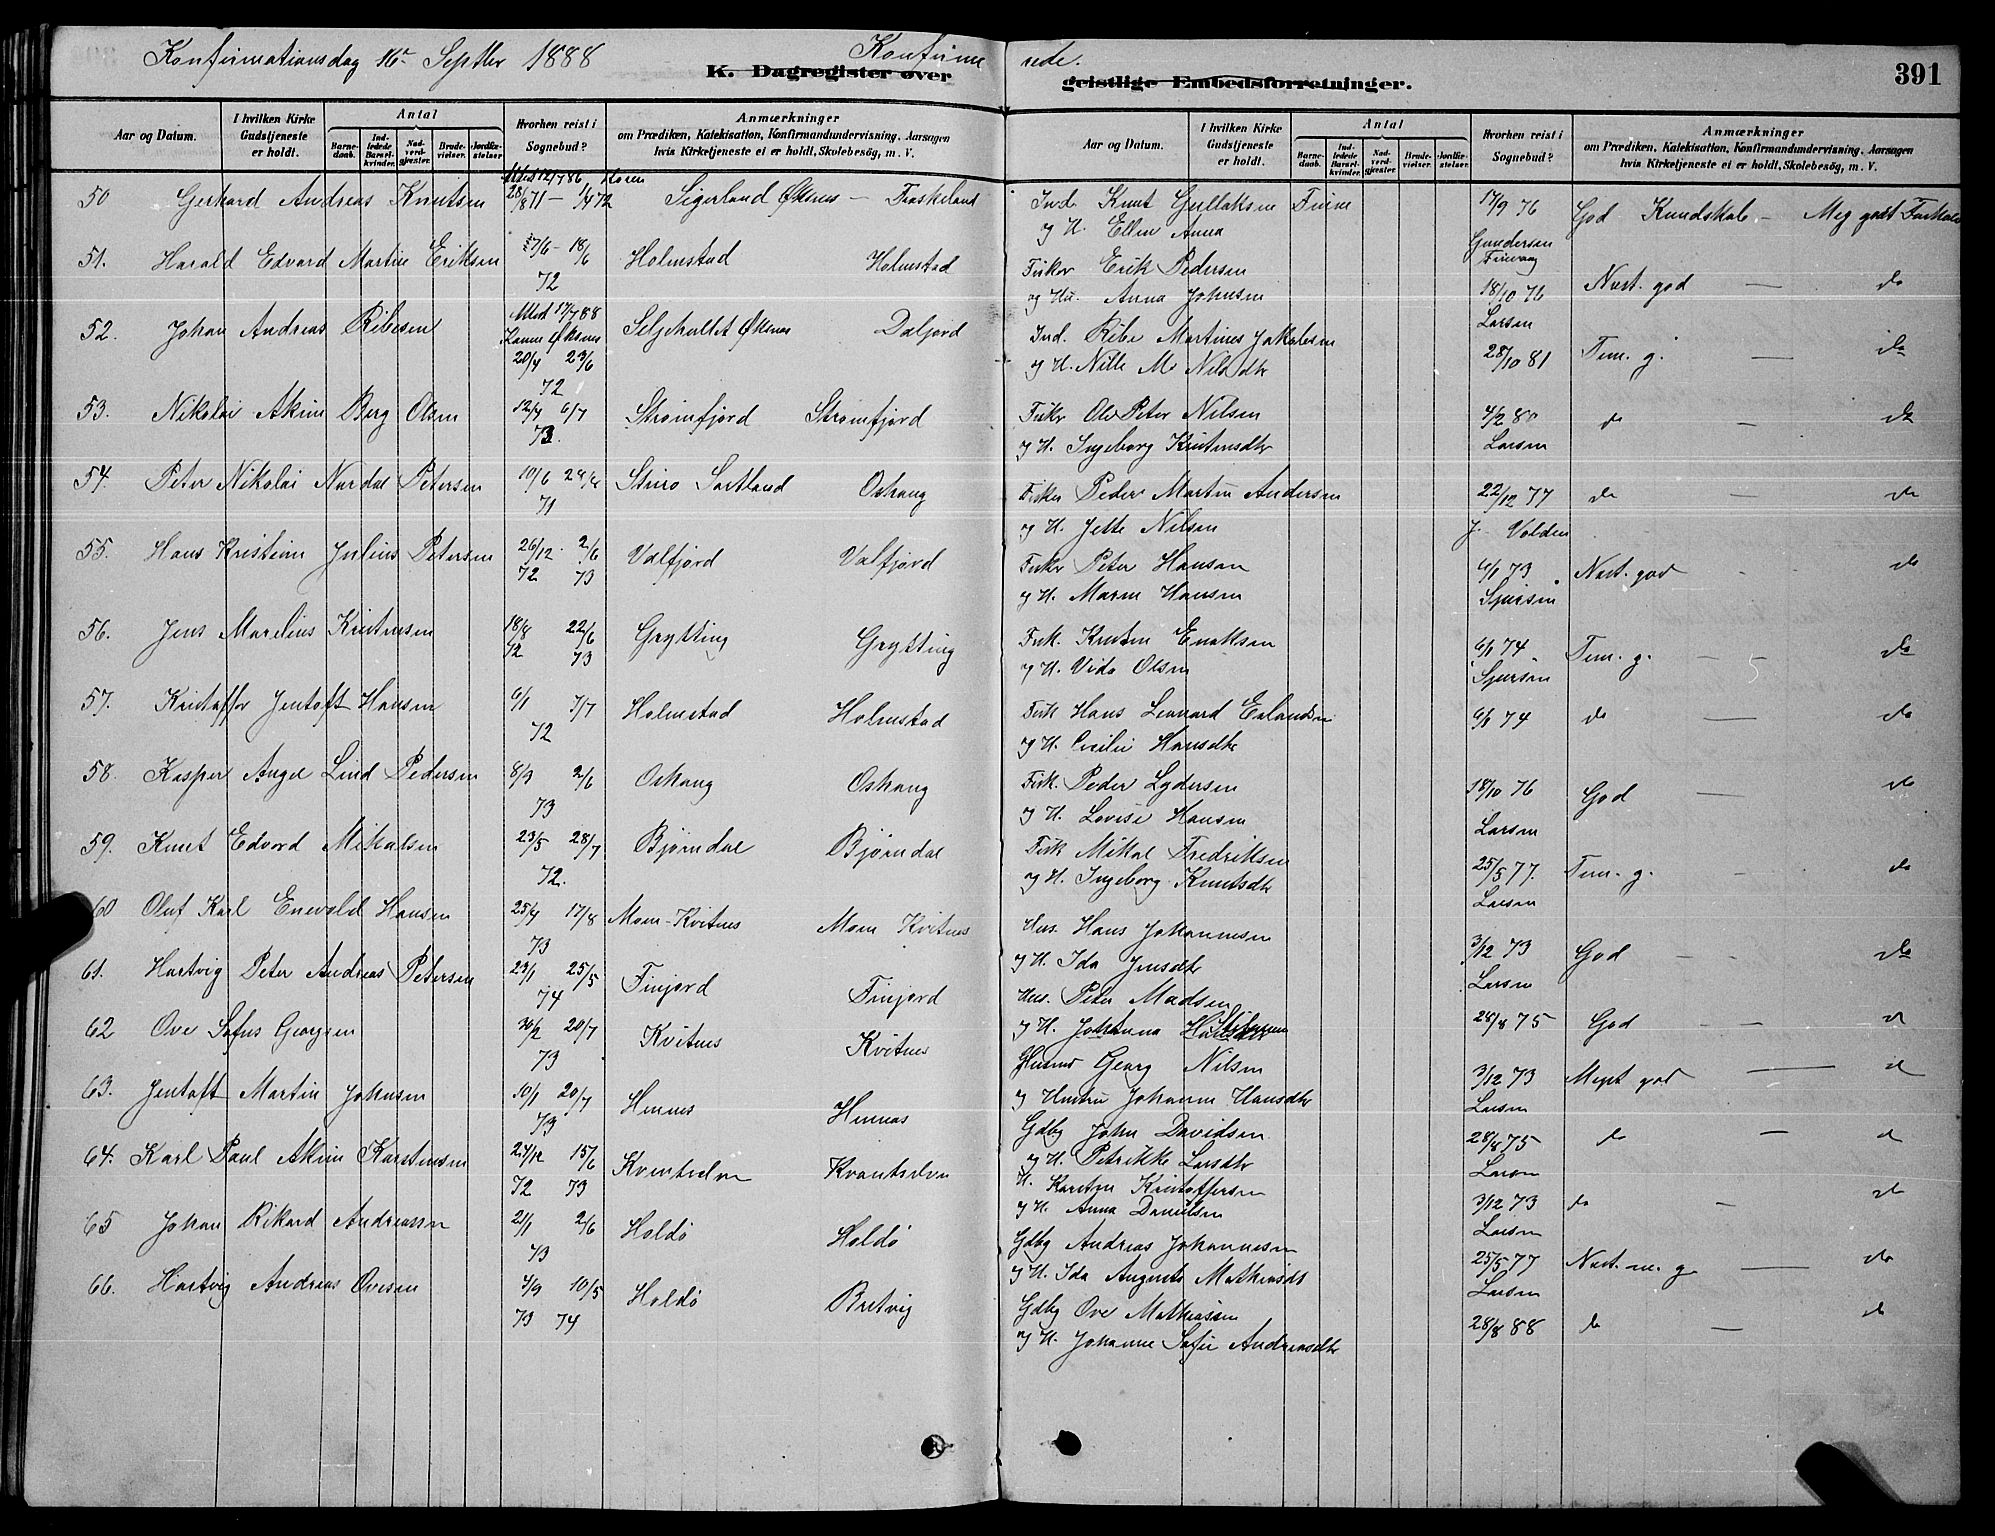 Konfirmationsdag 16de Septbr 1888 Konfirmerede.
K. Dagregister over geistlige Embedsforretninger.
391
Aar og Datum. I hvilken Kirke Gudstjeneste er holdt. Antal Barnedaab. Indledede Barselkvinder. Nadverdgjester. Brudevielser. Jordfæstelser. Hvorhen reist i Sognebud? Anmærkninger om Prædiken, Katekisation, Konfirmandundervisning, Aarsagen hvis Kirketjeneste ei er holdt, Skolebesøg, m. V.
Aar og Datum. I hvilken Kirke Gudstjeneste er holdt. Antal Barnedaab. Indledede Barselkvinder. Nadverdgjester. Brudevielser. Jordfæstelser. Hvorhen reist i Sognebud? Anmærkninger om Prædiken, Katekisation, Konfirmandundervisning, Aarsagen hvis Kirketjeneste ei er holdt, Skolebesøg, m. V.
50 Gerhard Andreas Knutsen 28/8 71 – 1/4 72 Sigerland Øksnes – Fraskeland Ind. Knut Gullaksen 17/9 76 God Kundskab – Meg godt Forhold
og H. Ellen Anna Gundersen
51. Harald Edvard Martin Eriksen 17/6 – 18/6 72 Holmstad Holmstad Fisker Erik Pedersen
og Hu. Anna Johnsen 18/10 76 Larsen Nært. god — do
52. Johan Andreas Ribesen Attest 17/7 88 20/4 23/6 72 Seljehultet Øksnes Daljord Ind. Ribe Martines Jakobsen
og H. Nille M. Nilsdtr 28/10 81 Tem. g. — do
53. Nikolai Akim Berg Olsen 12/4 6/7 73. Strømfjord Strømfjord Fisker Ole Peter Nilsen 4/2 80 do do
og H. Ingeborg Kristensdtr Larsen
54. Peter Nikolai Nordal Petersen 10/6 71 Sortland Oshaug Fisker Peder Martin Andersen 22/12 77 do — do
og H. Jette Nilsen J. Volden
55. Hans Kristian Julius Petersen 26/12 72 2/6 73 Valfjord Valfjord Fisker Peter Hansen 6/1 73 Nært. god - do
og H. Maren Hansen Sjursen
56. Jens Marelius Kristensen 18/8 72 22/6 73 Grytting Grytting Fisk. Kristen Enoksen 6/1 74 Tem. g. — do
og H. Vida Olsen Sjursen
57. Kristoffer Jentoft Hansen 6/1 7/7 72 Holmstad Holmstad Fisk Hans Leonard Erlandsen 6/1 74 do — do
og H. Cecilie Hansdtr
58. Kasper Angel Lind Pedersen 8/9 2/6 73 Oshaug Oshaug Fisk. Peder Lydersen 18/10 76 God — do
og H. Lovise Hansen Larsen
59. Knut Edvard Mikalsen 23/5 28/7 72. Bjørndal Bjørndal Fisk Mikal Fredriksen 25/5 77. Tem. g. - do
og H. Ingeborg Knutsdtr Larsen
60 Oluf Karl Enevold Hansen 25/4 17/8 73 Moen-Kvitnes Moen Kvitnes Hus. Hans Johannesen 3/12 73 God - - do
og H. Ida Jensdtr Larsen
61. Hartvig Peter Andreas Petersen 23/1 25/5 74 Finjord Finjord Hus. Peter Madsen 28/8 75 God - - do
og H. Johanna
62 Ove Sofus Georgsen 30/2 20/7 73 Kvitnes Kvitnes Husmd Georg Nilsen 3/12 73 Meget god — do
og Hustru Johanne Hansdtr Larsen
63. Jentoft Martin Johnsen 10/1 20/7 73 Hennes Hennes Gdbg John Davidsen 28/8 75 do — do
og H. Petrikke Larsdtr Larsen
64. Karl Paul Akim Karstensen 24/12 72 15/6 73 Kventselven Kvantselven H. Karsten Kristoffersen 3/12 73 do - do
og H. Anna Danielsen Larsen
65 Johan Rikard Andreassen 21/1 2/6 73 Holdø Holdø Gdbg Andreas Johannesen 25/5 77 Nært. m. g. — do
og H. Ida Augusta Mathiasdt Larsen
66. Hartvig Andreas Ovesen 4/9 73 10/5 74 Holdø Bretvig Gdbg Ove Mathiassen 28/8 88 do — do
og H. Johanne Sofie Andreasdtr